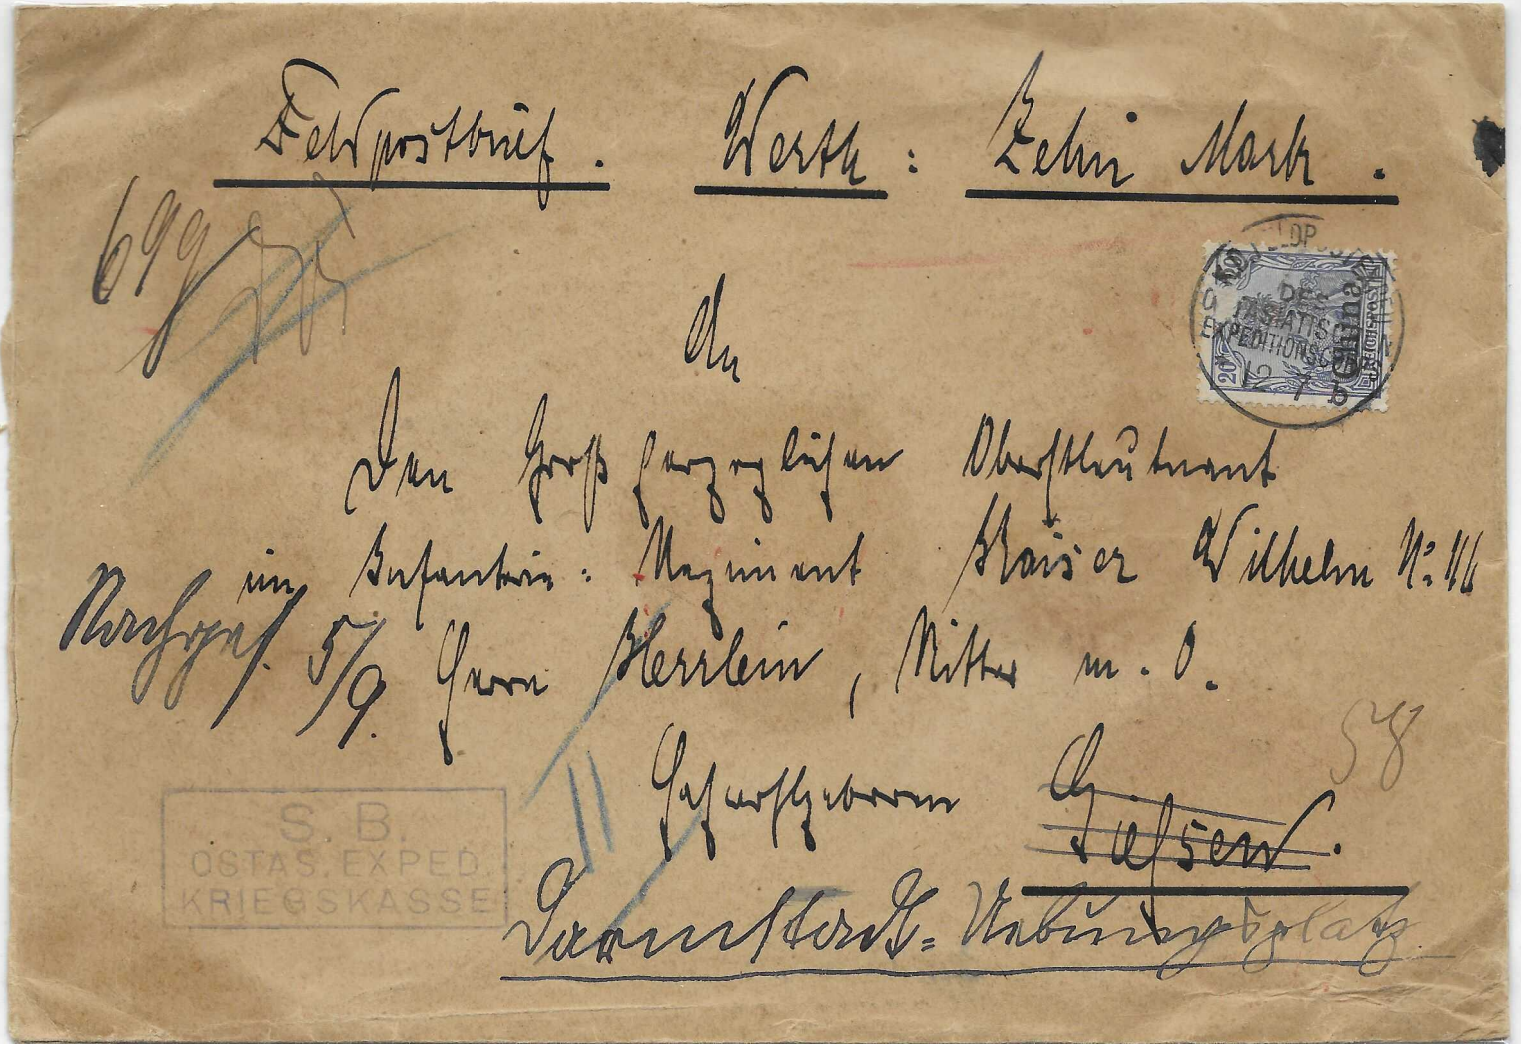 Feldpostbrief. Werth: Zehn Mark.
699
An
Den Großherzoglichen Oberstleutnant
im Infanterie-Regiment Kaiser Wilhelm No: 116
Herrn Herrlein, Ritter m. O.
Nachges. 5/9.
Hochwohlgeboren
Giessen.
58
Darmstadt-Uebungsplatz
S. B.
OSTAS. EXPED.
KRIEGSKASSE
DES
OSTASIATISCHEN
EXPEDITIONSCORPS
12 7
b
China
REICHSPOST
20